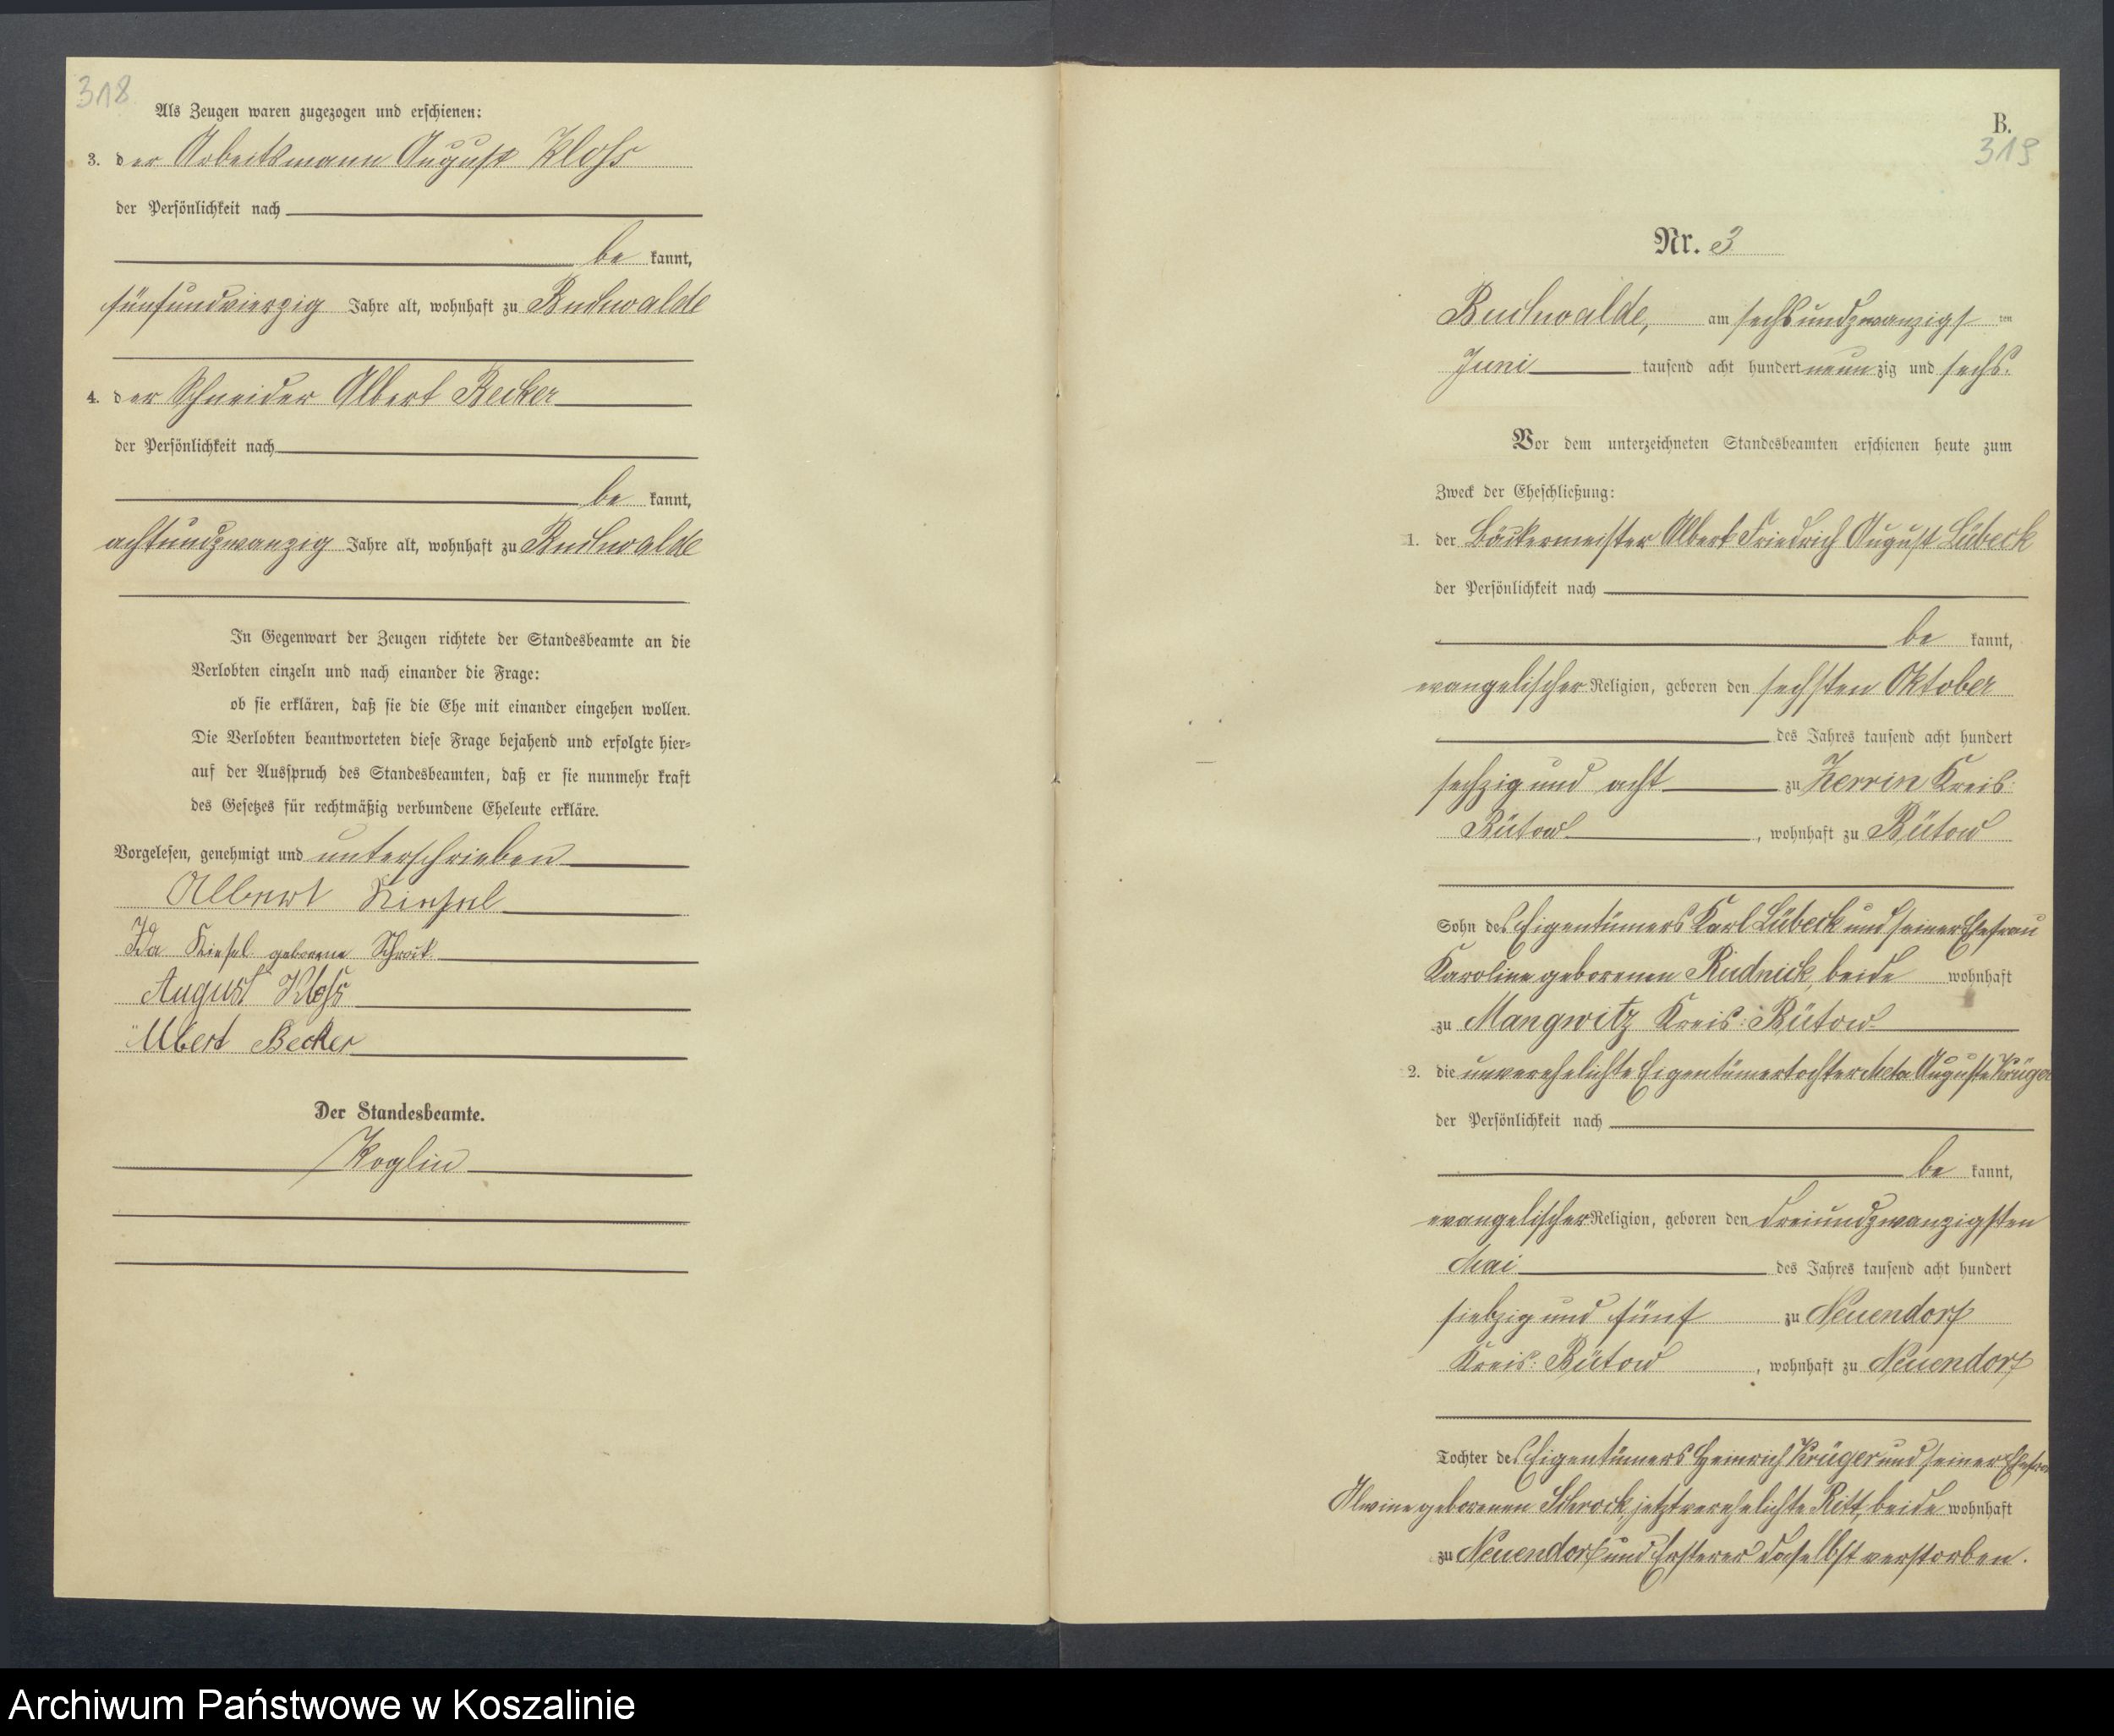 318
Als Zeugen waren zugezogen und erschienen:
3. der Arbeitsmann August Kloss
der Persönlichkeit nach
be kannt,
fünfundvierzig Jahre alt, wohnhaft zu Buchwalde
4. der Schneider Albert Becker
der Persönlichkeit nach
be kannt,
achtundzwanzig Jahre alt, wohnhaft zu Buchwalde
In Gegenwart der Zeugen richtete der Standesbeamte an die
Verlobten einzeln und nach einander die Frage:
ob sie erklären, daß sie die Ehe mit einander eingehen wollen.
Die Verlobten beantworteten diese Frage bejahend und erfolgte hier-
auf der Ausspruch des Standesbeamten, daß er sie nunmehr kraft
des Gesetzes für rechtmäßig verbundene Eheleute erkläre.
Vorgelesen, genehmigt und unterschrieben
Albert
Ida geborene
August Kloss
Albert Becker
Der Standesbeamte.
Koglin
B.
319
Nr. 3
Buchwalde, am sechsundzwanzigs ten
Juni tausend acht hundert neun zig und sechs.
Vor dem unterzeichneten Standesbeamten erschienen heute zum
Zweck der Eheschließung:
1. der Bäckermeister Albert Friedrich August Lübeck
der Persönlichkeit nach
be kannt,
evangelischer Religion, geboren den sechsten Oktober
des Jahres tausend acht hundert
sechzig und acht zu Zerrin Kreis:
Bütow, wohnhaft zu Bütow
Sohn des Eigentümers Karl Lübeck und seiner Ehefrau
Karoline geborenen Rudnick, beide wohnhaft
zu Mangwitz Kreis: Bütow
2. die unverehelichte Eigentümertochter Meta Auguste Krüger
der Persönlichkeit nach
be kannt,
evangelischer Religion, geboren den dreiundzwanzigsten
Mai des Jahres tausend acht hundert
siebzig und fünf zu Neuendorf
Kreis: Bütow, wohnhaft zu Neuendorf
Tochter des Eigentümers Heinrich Krüger und seiner Ehefrau
Alwine geborenen Schrock, jetzt verehelichte Ritt, beide wohnhaft
zu Neuendorf und Ersterer daselbst verstorben.
Archiwum Państwowe w Koszalinie